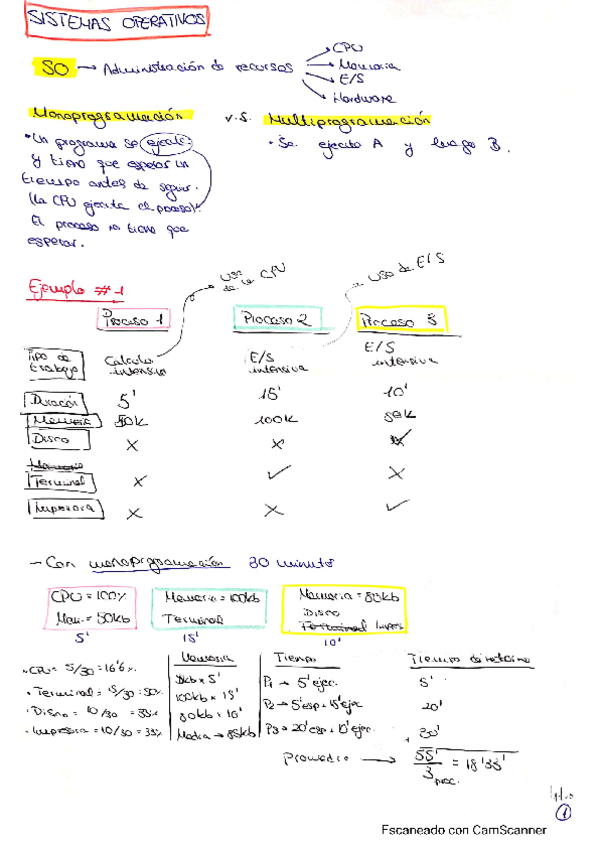 SISTEMAS OPERATIVOS
SO → Administración de recursos
CPU
Memoria
E/S
Hardware
Monoprogramación v.s. Multiprogramación
• Un programa se ejecuta
y tiene que esperar un
tiempo antes de seguir.
(la CPU ejecuta el proceso).
El proceso no tiene que
esperar.
• Se ejecuta A y luego B.
Ejemplo #1
uso de la CPU
uso de E/S
Proceso 1 Proceso 2 Proceso 3
Tipo de trabajo Calculo intensivo E/S intensiva E/S intensiva
Duración 5' 15' 10'
Memoria 50K 100K 80K
Disco X X
Terminal X ✓ X
Impresora X X ✓
- Con monoprogramación 30 minutos
CPU = 100%
Mem. = 50kb
5'
Memoria = 100kb
Terminal
15'
Memoria = 80kb
Disco
10'
Memoria Tiempo Tiempo de retorno
• CPU = 5/30 = 16'6%. 50kb x 5' P1 → 5' ejec. 5'
• Terminal = 15/30 = 50%. 100kb x 15' P2 → 5' esp + 15' ejec 20'
• Disco = 10/30 = 33% 80kb x 10' P3 → 20' esp + 10' ejec. + 30'
• Impresora = 10/30 = 33% Media → 85kb
Promedio → 55' / 3 proc. = 18'33'
1
Escaneado con CamScanner